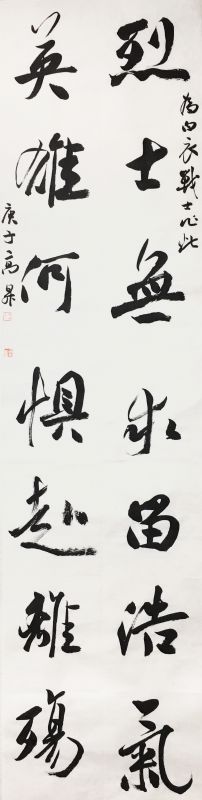 為白衣戰士作此
烈士無求留浩氣
英雄何懼赴離殤
庚子高昇